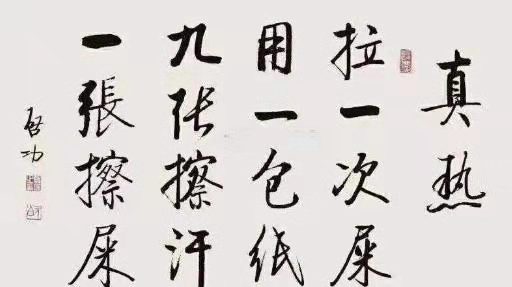 真热
拉一次屎
用一包纸
九张擦汗
一張擦屎
启功